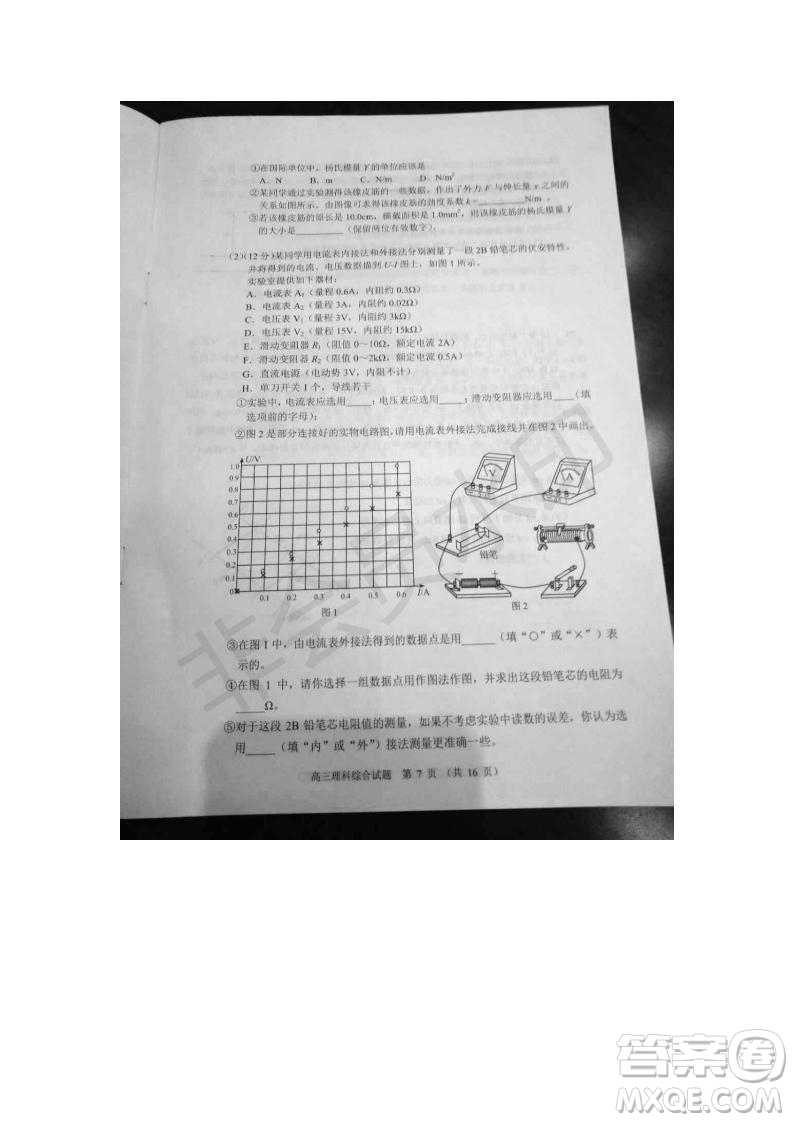 ①在国际单位中，杨氏模量 Y 的单位应该是
A．N B．m C．N/m D．N/m²
②某同学通过实验测得该橡皮筋的一些数据，作出了外力 F 与伸长量 x 之间的
关系如图所示．由图像可求得该橡皮筋的劲度系数 k =________N/m 。
③若该橡皮筋的原长是 10.0cm，横截面积是 1.0mm²，则该橡皮筋的杨氏模量 Y
的大小是________（保留两位有效数字）．
(2)(12 分)某同学用电流表内接法和外接法分别测量了一段 2B 铅笔芯的伏安特性，
并将得到的电流、电压数据描到 U-I 图上，如图 1 所示。
实验室提供如下器材：
A．电流表 A₁（量程 0.6A，内阻约 0.3Ω）
B．电流表 A₂（量程 3A，内阻约 0.02Ω）
C．电压表 V₁（量程 3V，内阻约 3kΩ）
D．电压表 V₂（量程 15V，内阻约 15kΩ）
E．滑动变阻器 R₁（阻值 0～10Ω，额定电流 2A）
F．滑动变阻器 R₂（阻值 0～2kΩ，额定电流 0.5A）
G．直流电源（电动势 3V，内阻不计）
H．单刀开关 1 个，导线若干
①实验中，电流表应选用_____；电压表应选用_____；滑动变阻器应选用____（填
选项前的字母）；
②图 2 是部分连接好的实物电路图，请用电流表外接法完成接线并在图 2 中画出。
U/V
1.0
0.9
0.8
0.7
0.6
0.5
0.4
0.3
0.2
0.1
0
0.1 0.2 0.3 0.4 0.5 0.6 I/A
图 1
V
A
铅笔
图 2
③在图 1 中，由电流表外接法得到的数据点是用_____（填“○”或“×”）表
示的。
④在图 1 中，请你选择一组数据点用作图法作图，并求出这段铅笔芯的电阻为
_____Ω。
⑤对于这段 2B 铅笔芯电阻值的测量，如果不考虑实验中读数的误差，你认为选
用____（填“内”或“外”）接法测量更准确一些。
高三理科综合试题 第 7 页 （共 16 页）
非会员水印
答案卷
MXQE.COM